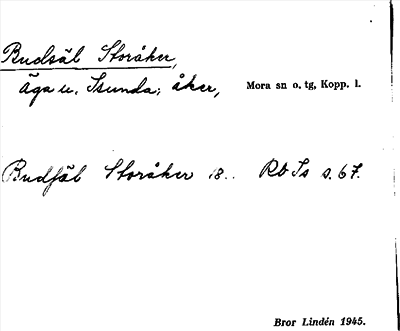 Rudsäl Storåker,
Äga u. Isunda; åker, Mora sn o. tg, Kopp. l.
Budsäl Storåker 18.. Rb Is s. 67.
Bror Lindén 1945.